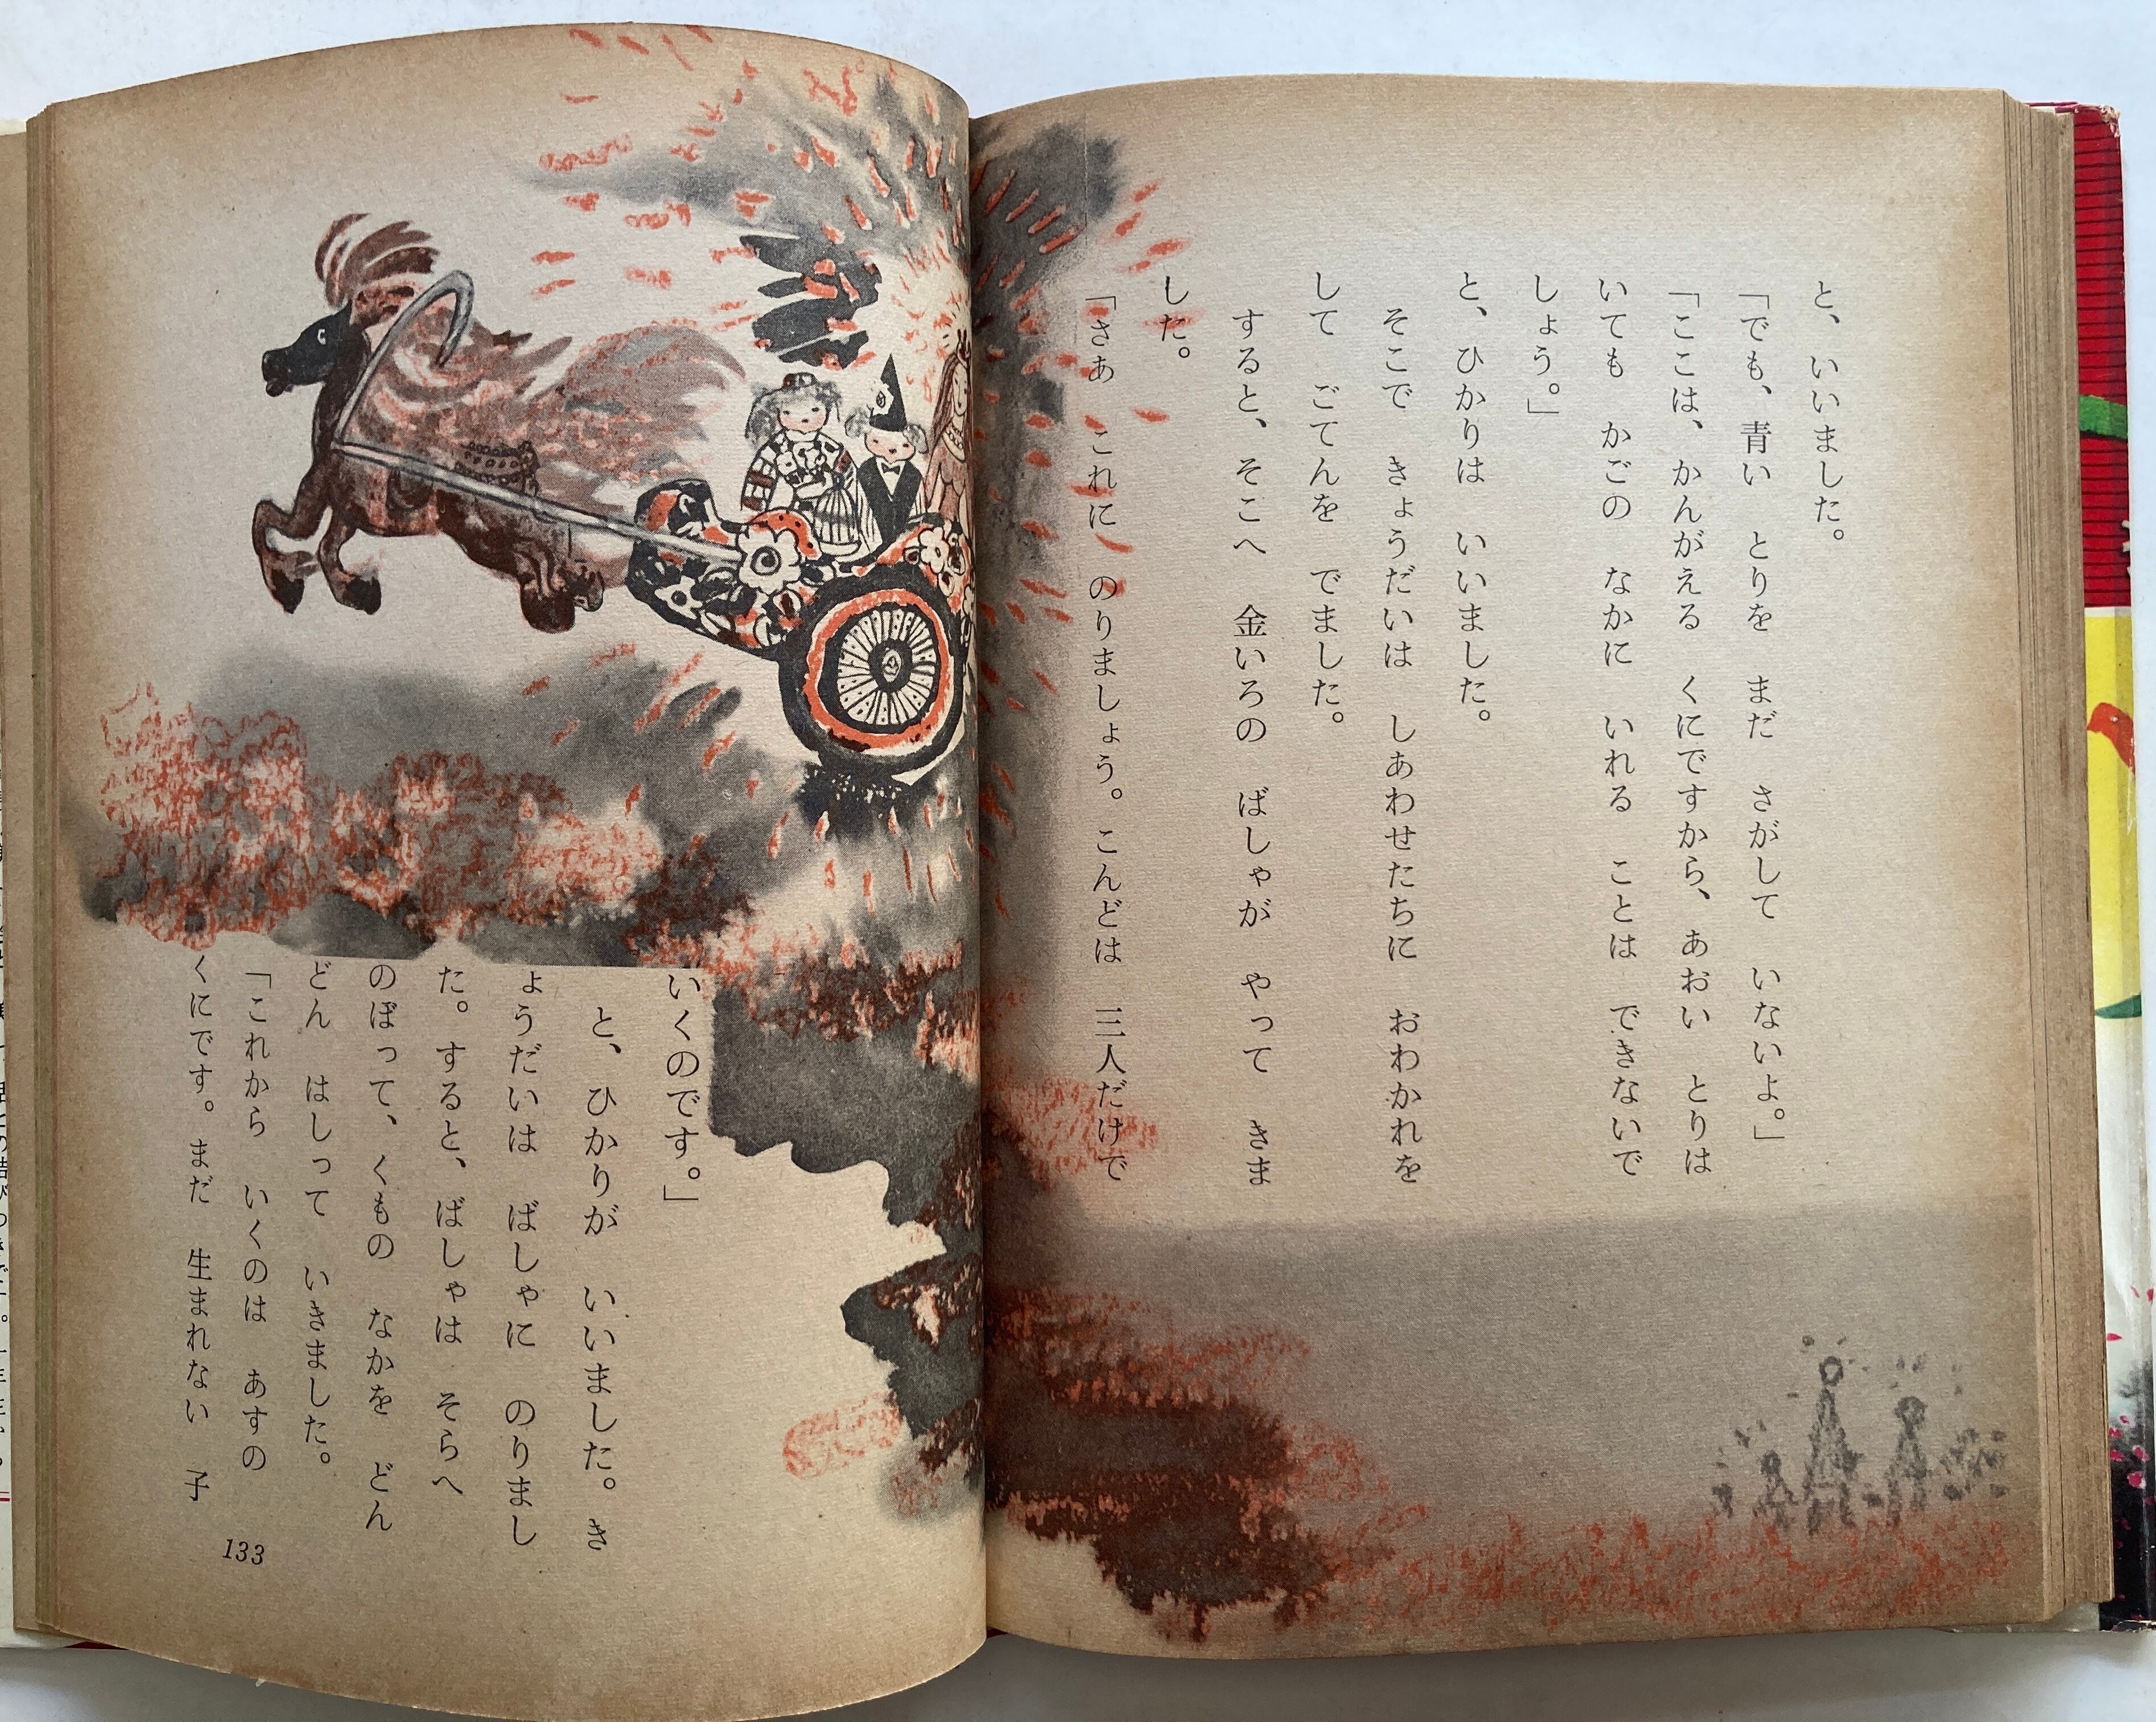 と、いいました。
「でも、青い　とりを　まだ　さがして　いないよ。」
「ここは、かんがえる　くにですから、あおい　とりは
いても　かごの　なかに　いれる　ことは　できないで
しょう。」
と、ひかりは　いいました。
そこで　きょうだいは　しあわせたちに　おわかれを
して　ごてんを　でました。
すると、そこへ　金いろの　ばしゃが　やって　きま
した。
「さあ　これに　のりましょう。こんどは　三人だけで
いくのです。」
と、ひかりが　いいました。き
ょうだいは　ばしゃに　のりまし
た。すると、ばしゃは　そらへ
のぼって、くもの　なかを　どん
どん　はしって　いきました。
「これから　いくのは　あすの
くにです。まだ　生まれない　子
133